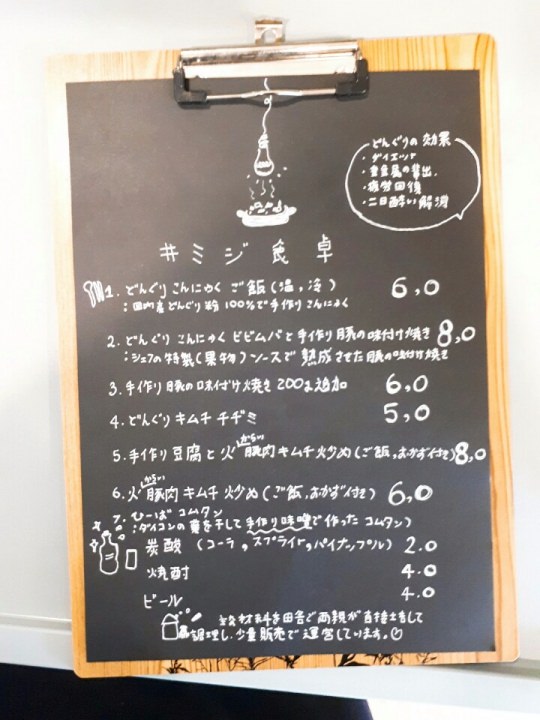 どんぐりの効果
・ダイエット
・重金属の算出
・疲労回復
・二日酔い解消
#ミジ食卓
1. どんぐりこんにゃくご飯(温,冷) 6,0
:国内産どんぐり粉100%で手作りこんにゃく
2. どんぐりこんにゃくビビムバと手作り豚の味付け焼き 8,0
:シェフの特製(果物)ソースで熟成させた豚の味付け焼き
3. 手作り豚の味付け焼き200g追加 6,0
4. どんぐりキムチチヂミ 5,0
からい
5. 手作り豆腐と火豚肉キムチ炒め(ご飯,おかず付き) 8,0
からい
6. 火豚肉キムチ炒め(ご飯,おかず付き) 6,0
7. ひーばコムタン
:ダイコンの葉を干して手作り味噌で作ったコムタン)
炭酸 (コーラ,スプライト,パイナップル) 2.0
焼酎 4.0
ビール 4.0
材料を田舎で両親が直接
調理し,少量販売で運営しています。